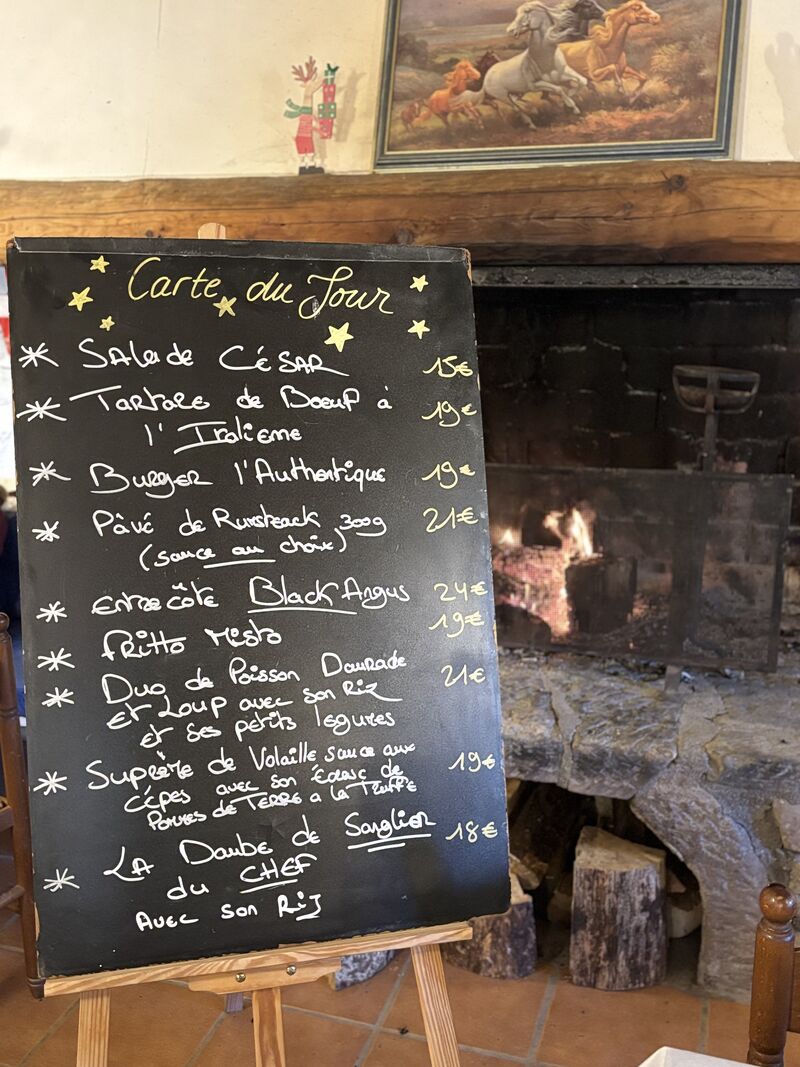 Carte du Jour
* Salade CéSAR 15€
* Tartare de Boeuf à 19€
l'Italiene
* Burger l'Authentique 19€
* Pâvé de Rumsteack 300g 21€
(sauce au choix)
* Entrecôte Black Angus 24€
* Fritto Misto 19€
* Duo de Poisson Daurade 21€
et Loup avec son Riz
et ses petits legumes
* Suprême de Volaille sauce aux 19€
cépes avec son Écrasé de
Pommes de Terre a la Truffe
* LA Daube de Sanglier 18€
du CHEF
Avec son Riz